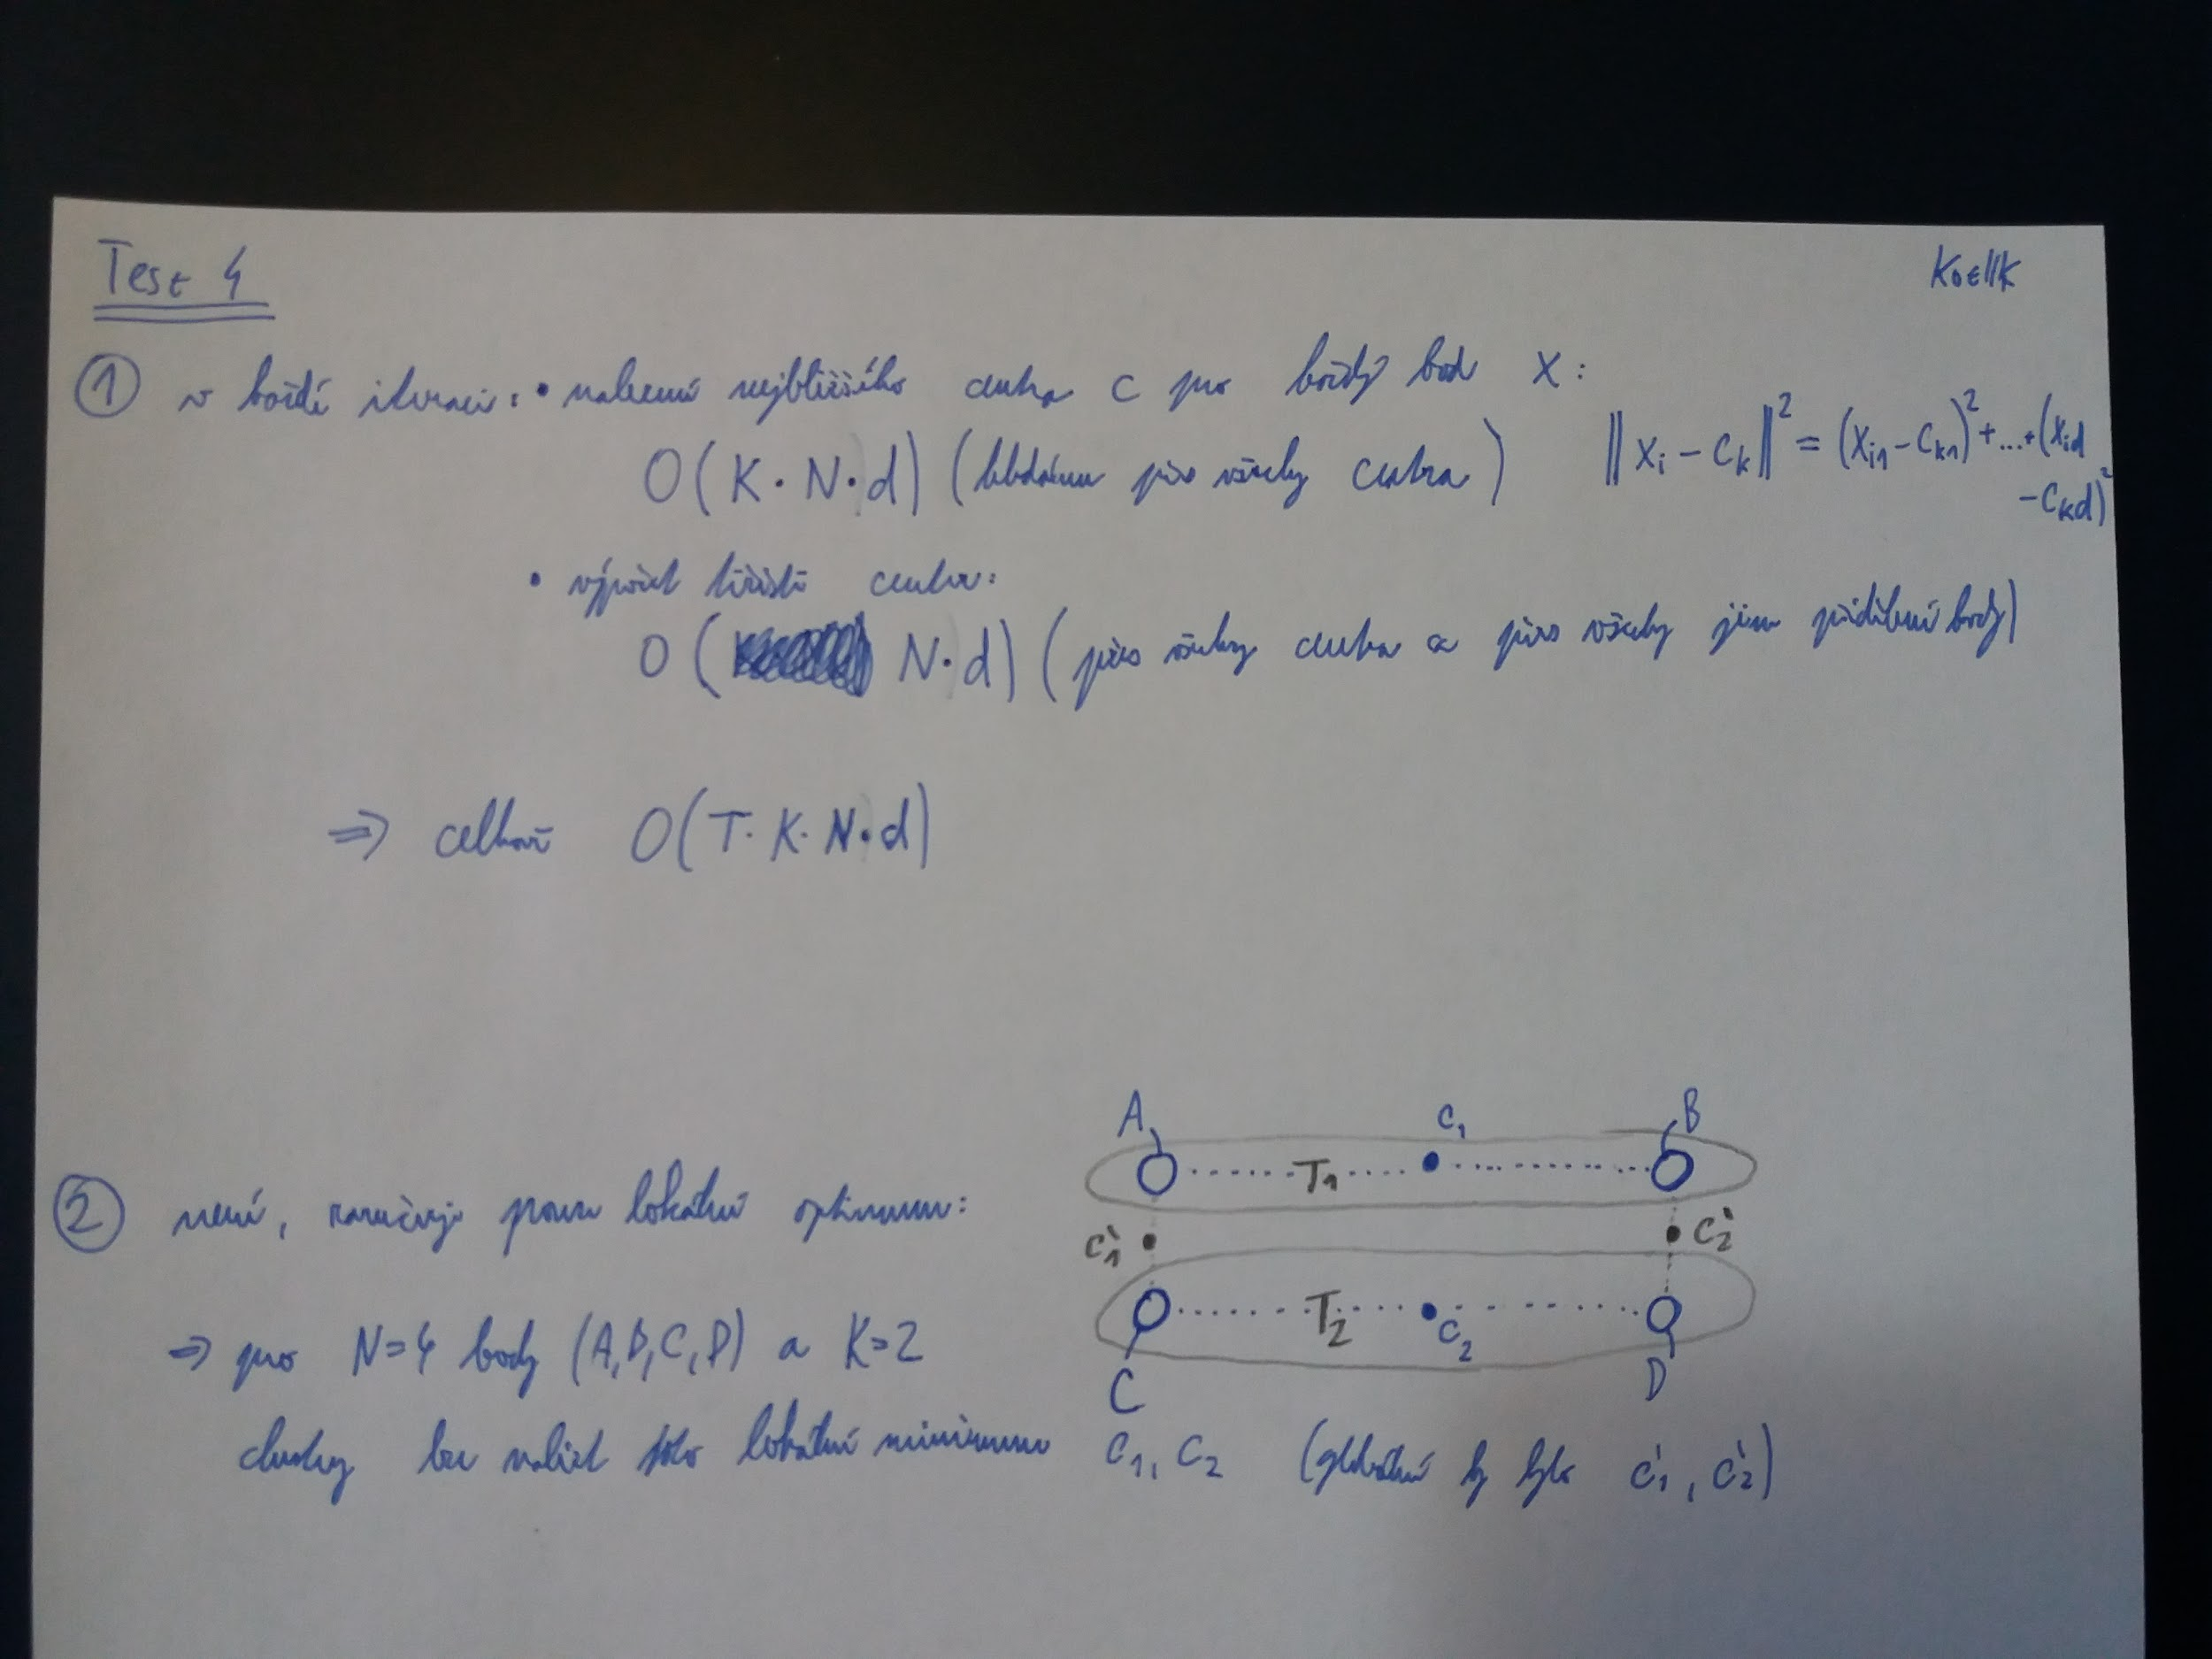 Test 4
KOEllK
① v každé iteraci: • nalezení nejbližšího centra C pro každý bod X:
O(K · N · d) (hledáme přes všechny centra)
‖xᵢ − cₖ‖² = (xᵢ₁ − cₖ₁)² + ... + (xᵢd
− cₖd)²
• výpočet těžiště centra:
O( N · d) (přes všechny centra a přes všechny jim přidělené body)
⇒ celkově O(T · K · N · d)
A c₁ B
T₁
② není, zaručuje pouze lokální optimum:
c₁' c₂'
T₂ c₂
⇒ pro N=4 body (A,B,C,D) a K=2
C D
clustery lze nalézt toto lokální minimum c₁, c₂ (globální by bylo c₁', c₂')